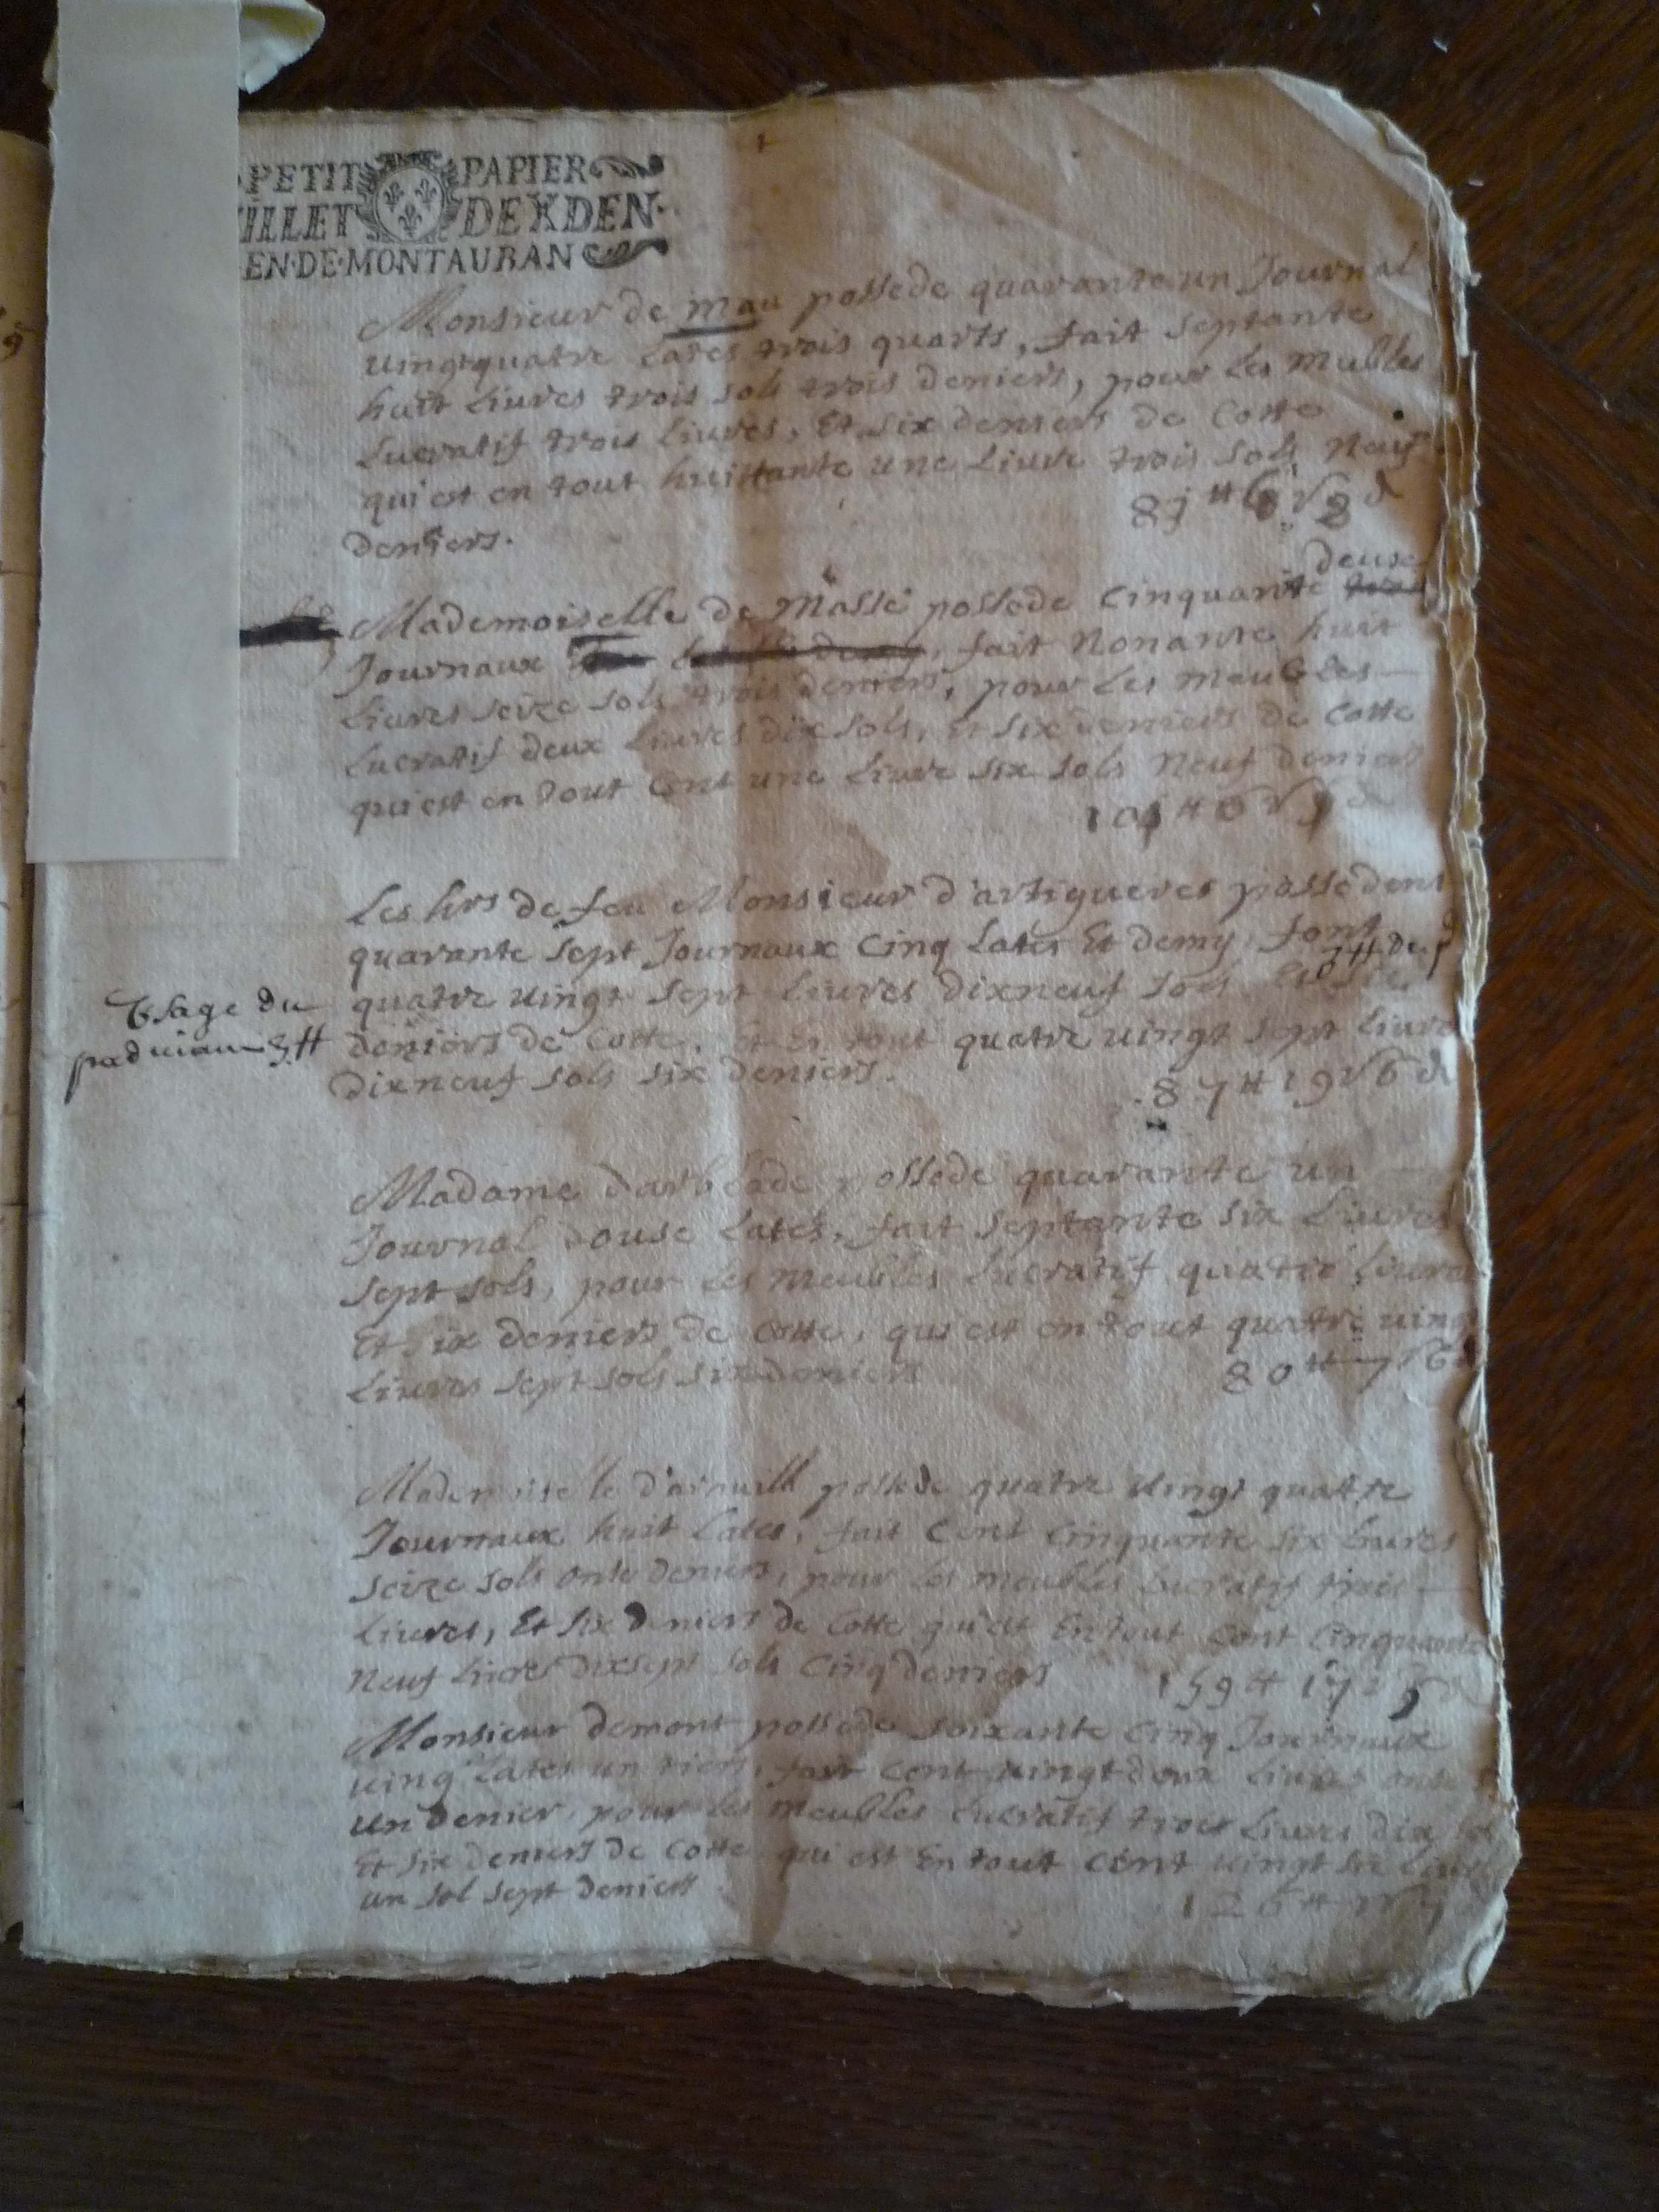 PETIT PAPIER
ILLET DEXDEN.
EN·DE·MONTAUBAN
Monsieur de mau possede quarante un Journal
uingtquatre Lates trois quarts, fait septante
huit Liures trois sols trois deniers, pour Les mubles
Lucratif trois Liures, Et six deniers de Cotte
qui est en tout huittante une Liure trois sols Neuf
deniers.
deuse
Mademoiselle de Masse possede Cinquante
Journaux fait Nonante huit
Liures seize sols trois deniers, pour Les meubles
Lucratif deux Liures dix sols, Et six deniers de Cotte
qui est en tout Cent une Liure six sols Neuf deniers
Les hrs de feu Monsieur d'artigueres possedent
quarante sept Journaux Cinq Lates Et demy, font
quatre uingt sept Liures dixneuf sols
Usage du
deniers de Cotte, Et En tout quatre uingt sept Liures
3 ₶
dixneuf sols six deniers.
87 ₶ 19 s 6 d
Madame darblade possede quarante un
Journal douse Lates, fait septante six Liures
sept sols, pour Les meubles Lucratif quatre Liures
Et six deniers de Cotte, qui est en tout quatre uing
Liures sept sols six deniers
80 ₶ 7 s 6 d
Mademoiselle possede quatre uingt quattre
Journaux huit Lates, fait Cent Cinquante six Liures
seize sols onse deniers, pour Les meubles Lucratif trois
Liures, Et six deniers de Cotte qui est En tout Cent Cinquante
Neuf Liures dixsept sols Cinq deniers
159 ₶ 17 s 5 d
Monsieur demont possede soixante Cinq Journaux
uing Lates un tiers, fait Cent uingt deux Liures onse
un denier, pour Les meubles Lucratif trois Liures dix
Et six deniers de Cotte qui est En tout Cent uingt six Liures
un sol sept deniers